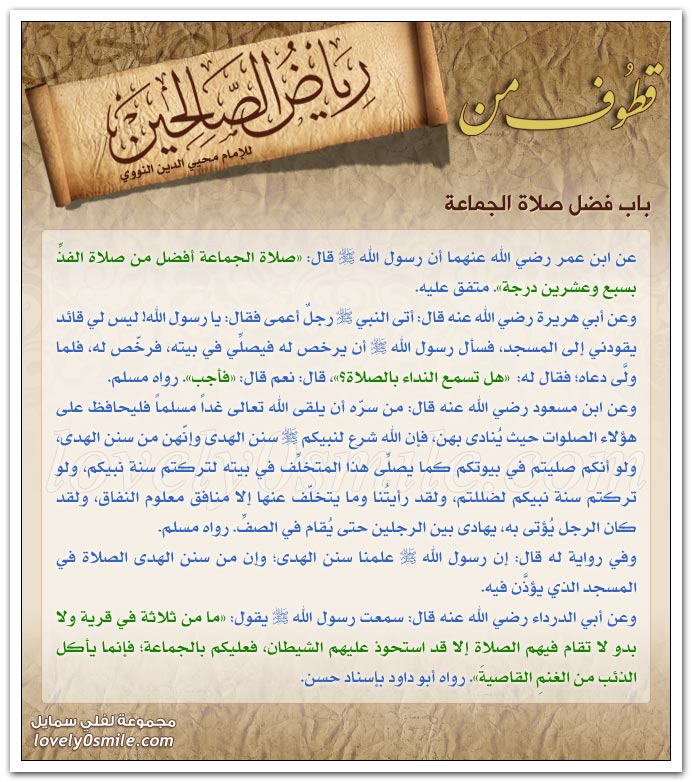 قطوف من
رِيَاضُ الصَّالِحِين
للإمام محيي الدين النووي
باب فضل صلاة الجماعة
عن ابن عمر رضي الله عنهما أن رسول الله ﷺ قال: «صلاة الجماعة أفضل من صلاة الفذِّ
بسبع وعشرين درجة». متفق عليه.
وعن أبي هريرة رضي الله عنه قال: أتى النبي ﷺ رجلٌ أعمى فقال: يا رسول الله! ليس لي قائد
يقودني إلى المسجد، فسأل رسول الله ﷺ أن يرخص له فيصلِّي في بيته، فرخّص له، فلما
ولَّى دعاه؛ فقال له: «هل تسمع النداء بالصلاة؟»، قال: نعم قال: «فأجب». رواه مسلم.
وعن ابن مسعود رضي الله عنه قال: من سرّه أن يلقى الله تعالى غداً مسلماً فليحافظ على
هؤلاء الصلوات حيث يُنادى بهن، فإن الله شرع لنبيكم ﷺ سنن الهدى وإنّهن من سنن الهدى،
ولو أنكم صليتم في بيوتكم كما يصلِّى هذا المتخلِّف في بيته لتركتم سنة نبيكم، ولو
تركتم سنة نبيكم لضللتم، ولقد رأيتُنا وما يتخلّف عنها إلا منافق معلوم النفاق، ولقد
كان الرجل يُؤتى به، يهادى بين الرجلين حتى يُقام في الصفِّ. رواه مسلم.
وفي رواية له قال: إن رسول الله ﷺ علمنا سنن الهدى؛ وإن من سنن الهدى الصلاة في
المسجد الذي يؤذَّن فيه.
وعن أبي الدرداء رضي الله عنه قال: سمعت رسول الله ﷺ يقول: «ما من ثلاثة في قرية ولا
بدو لا تقام فيهم الصلاة إلا قد استحوذ عليهم الشيطان، فعليكم بالجماعة؛ فإنما يأكل
الذئب من الغنمِ القاصيةَ». رواه أبو داود بإسناد حسن.
lovely0smile.com
مجموعة لفلي سمايل
lovely0smile.com